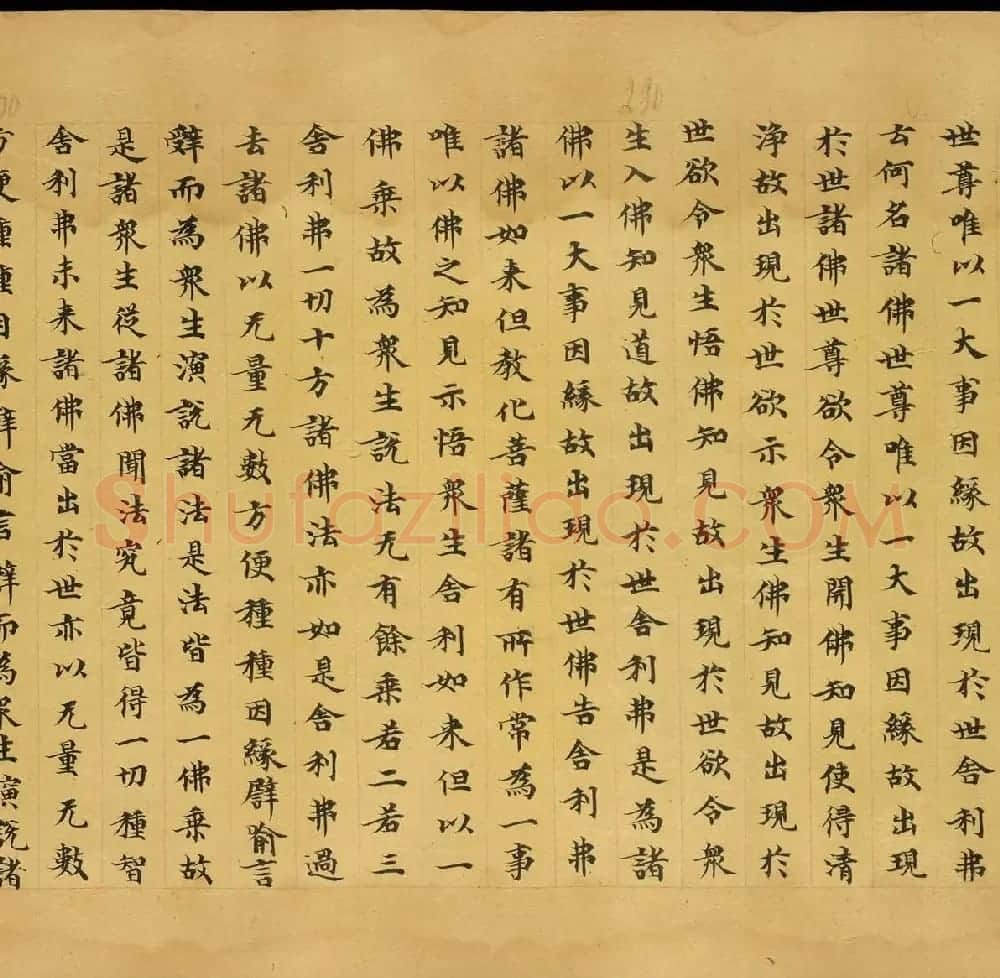 世尊唯以一大事因緣故出現於世舍利弗
云何名諸佛世尊唯以一大事因緣故出現
於世諸佛世尊欲令衆生開佛知見使得清
淨故出現於世欲示衆生佛知見故出現於
世欲令衆生悟佛知見故出現於世欲令衆
生入佛知見道故出現於世舍利弗是為諸
佛以一大事因緣故出現於世佛告舍利弗
諸佛如来但教化菩薩諸有所作常為一事
唯以佛之知見示悟衆生舍利如来但以一
佛乗故為衆生說法无有餘乗若二若三
舍利弗一切十方諸佛法亦如是舍利弗過
去諸佛以无量无數方便種種因緣譬喻言
辤而為衆生演說諸法是法皆為一佛乗故
是諸衆生從諸佛聞法究竟皆得一切種智
舍利弗未来諸佛當出於世亦以无量无數
方便種種因緣譬喻言辤而為衆生演說諸
290
Shufaziliao.COM